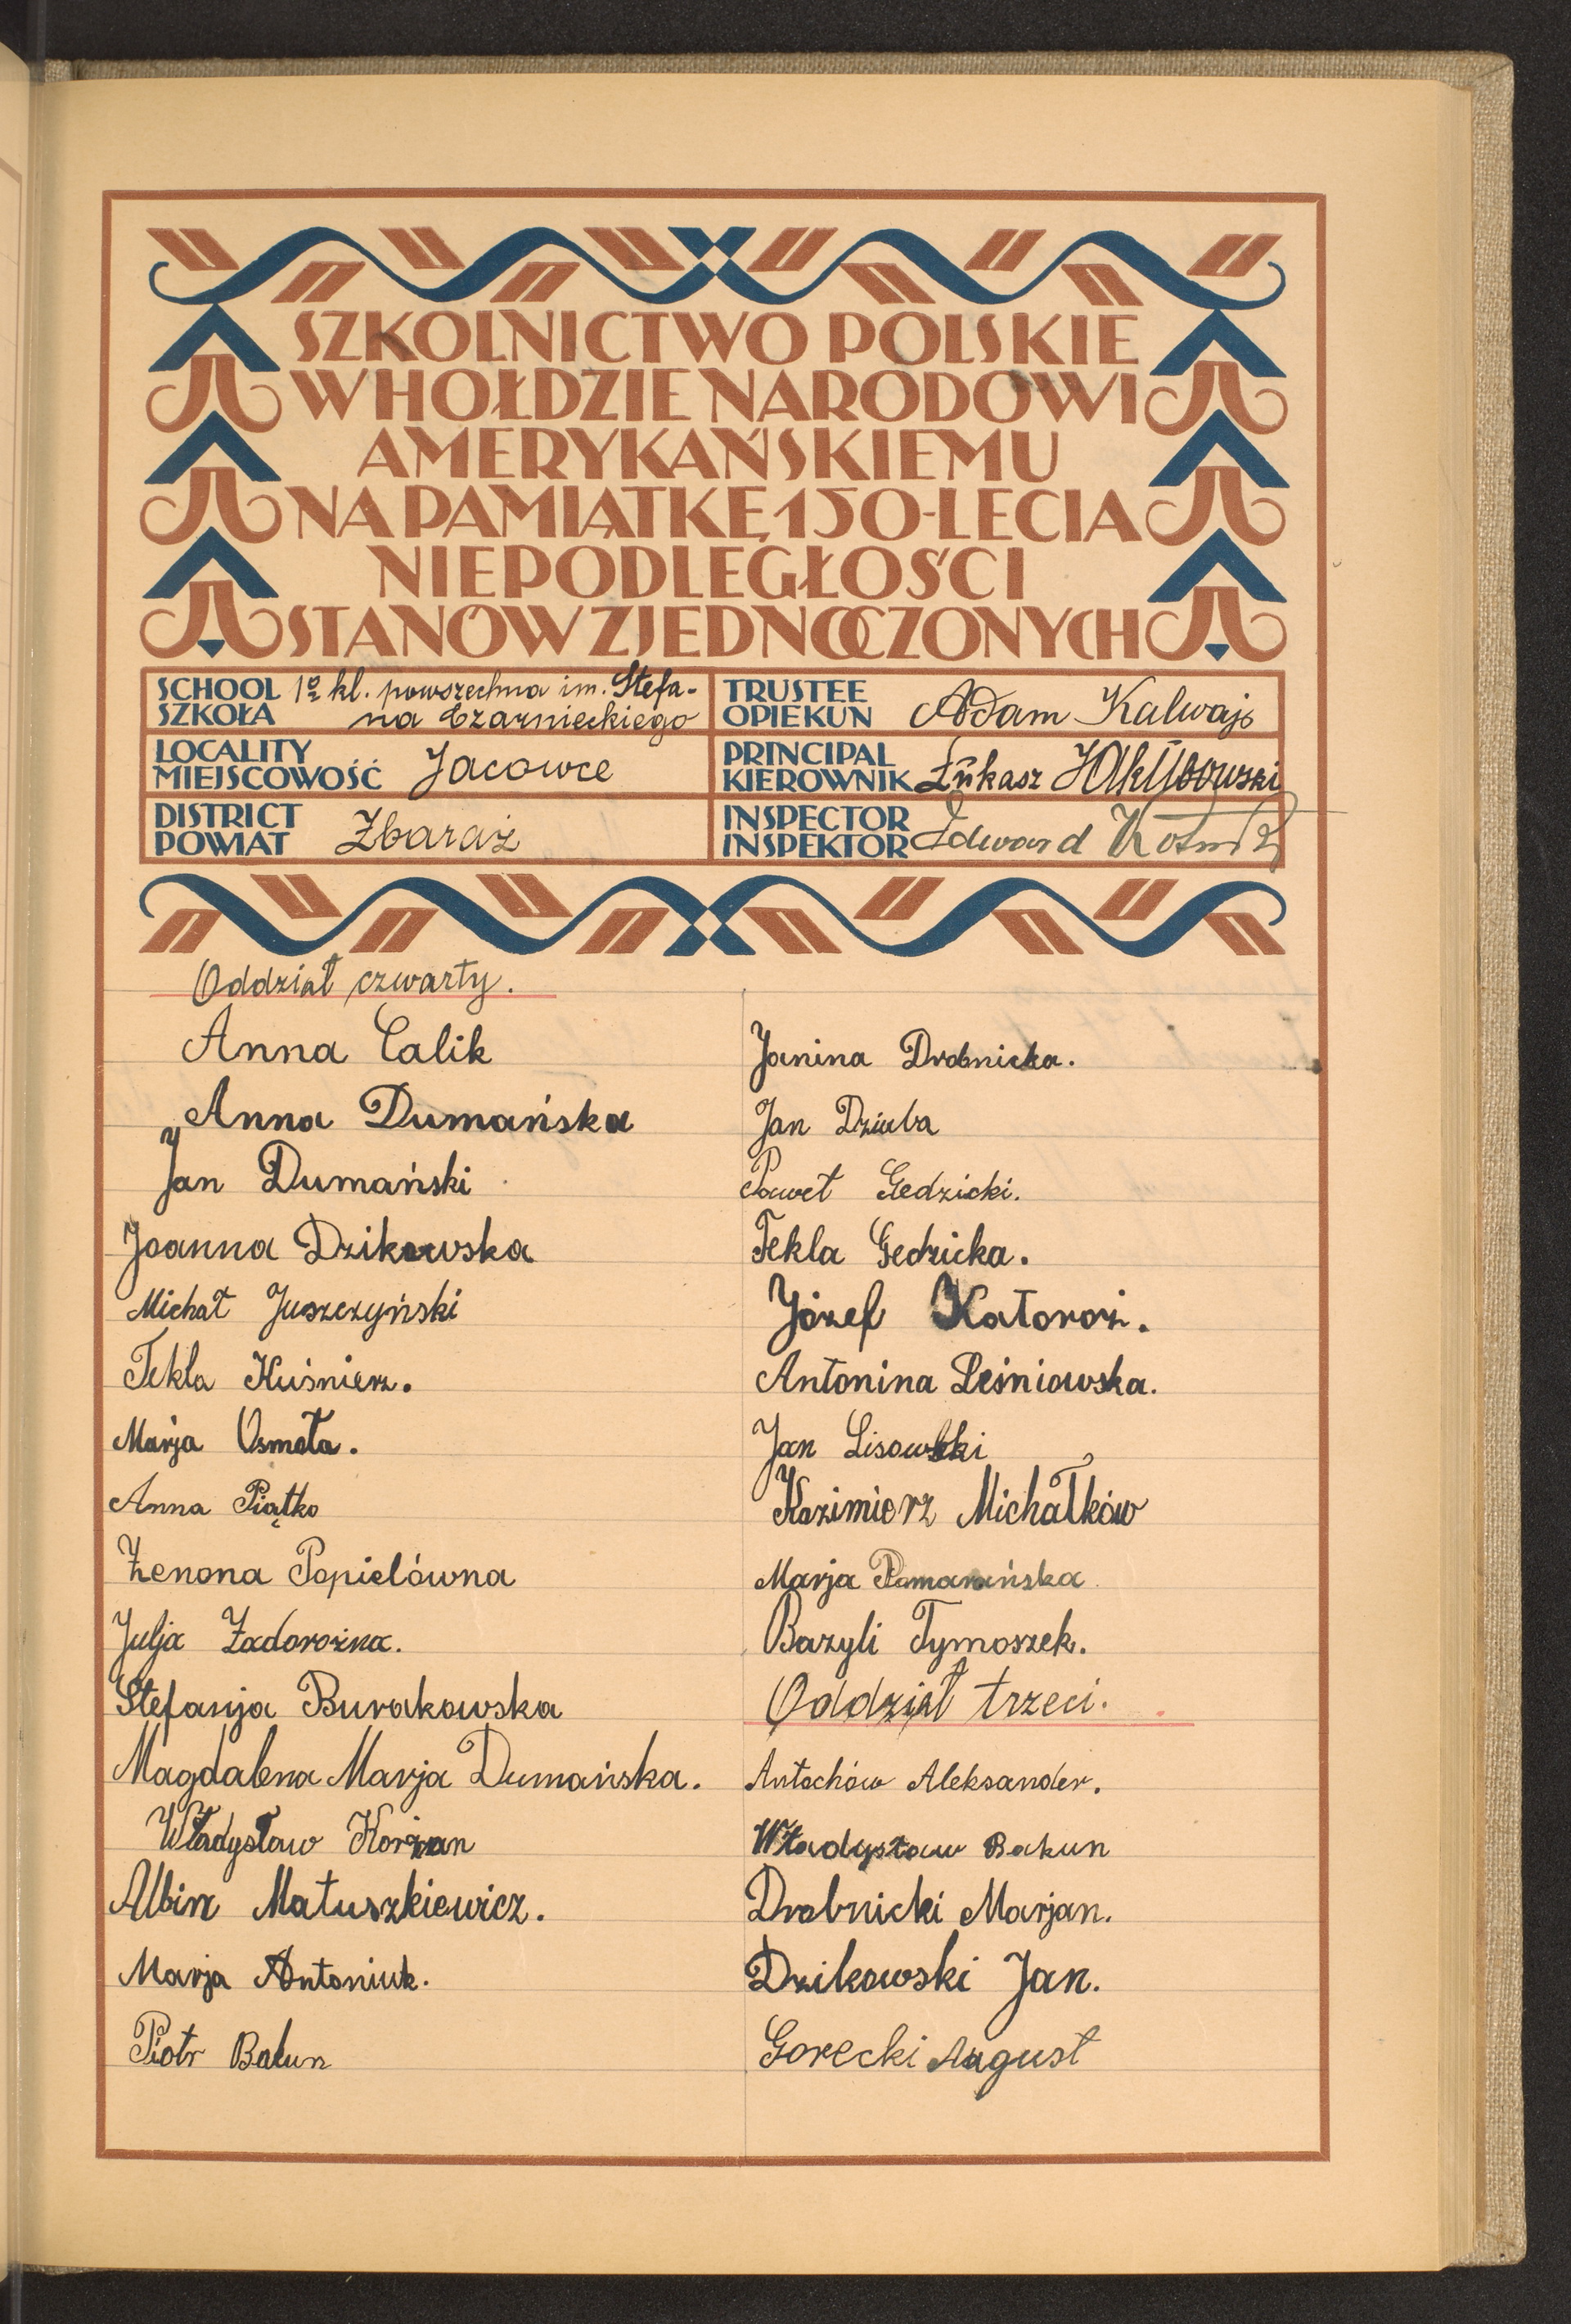 SZKOLNICTWO POLSKIE
W HOŁDZIE NARODOWI
AMERYKAŃSKIEMU
NA PAMIĄTKĘ 150-LECIA
NIEPODLEGŁOŚCI
STANÓW ZJEDNOCZONYCH
SCHOOL
SZKOŁA
1o kl. powszechna im. Stefa-
na Czarnieckiego
TRUSTEE
OPIEKUN
Adam Kalwajs
LOCALITY
MIEJSCOWOŚĆ
Jacowce
PRINCIPAL
KIEROWNIK
Łukasz Jakubowski
DISTRICT
POWIAT
Zbaraż
INSPECTOR
INSPEKTOR
Edward
Oddział czwarty.
Anna Calik
Anna Dumańska
Jan Dumański
Joanna Dzikowska
Michał Juszczyński
Tekla Kuśnierz.
Marja Osmola.
Anna Piątko
Zenona Popielówna
Julja Zadorożna.
Stefanja Burakowska
Magdalena Marja Dumańska.
Władysław Korżan
Albin Matuszkiewicz.
Marja Antoniuk.
Piotr Bakun
Janina Drobnicka.
Jan Dziuba
Paweł Gedzicki.
Tekla Gedzicka.
Józef Katoroż.
Antonina Leśniowska.
Jan Lisowski
Kazimierz Michałków
Marja Pomarańska
Bazyli Tymoszek.
Oddział trzeci.
Antochów Aleksander.
Władysław Bakun
Drobnicki Marjan.
Dzikowski Jan.
Gorecki August